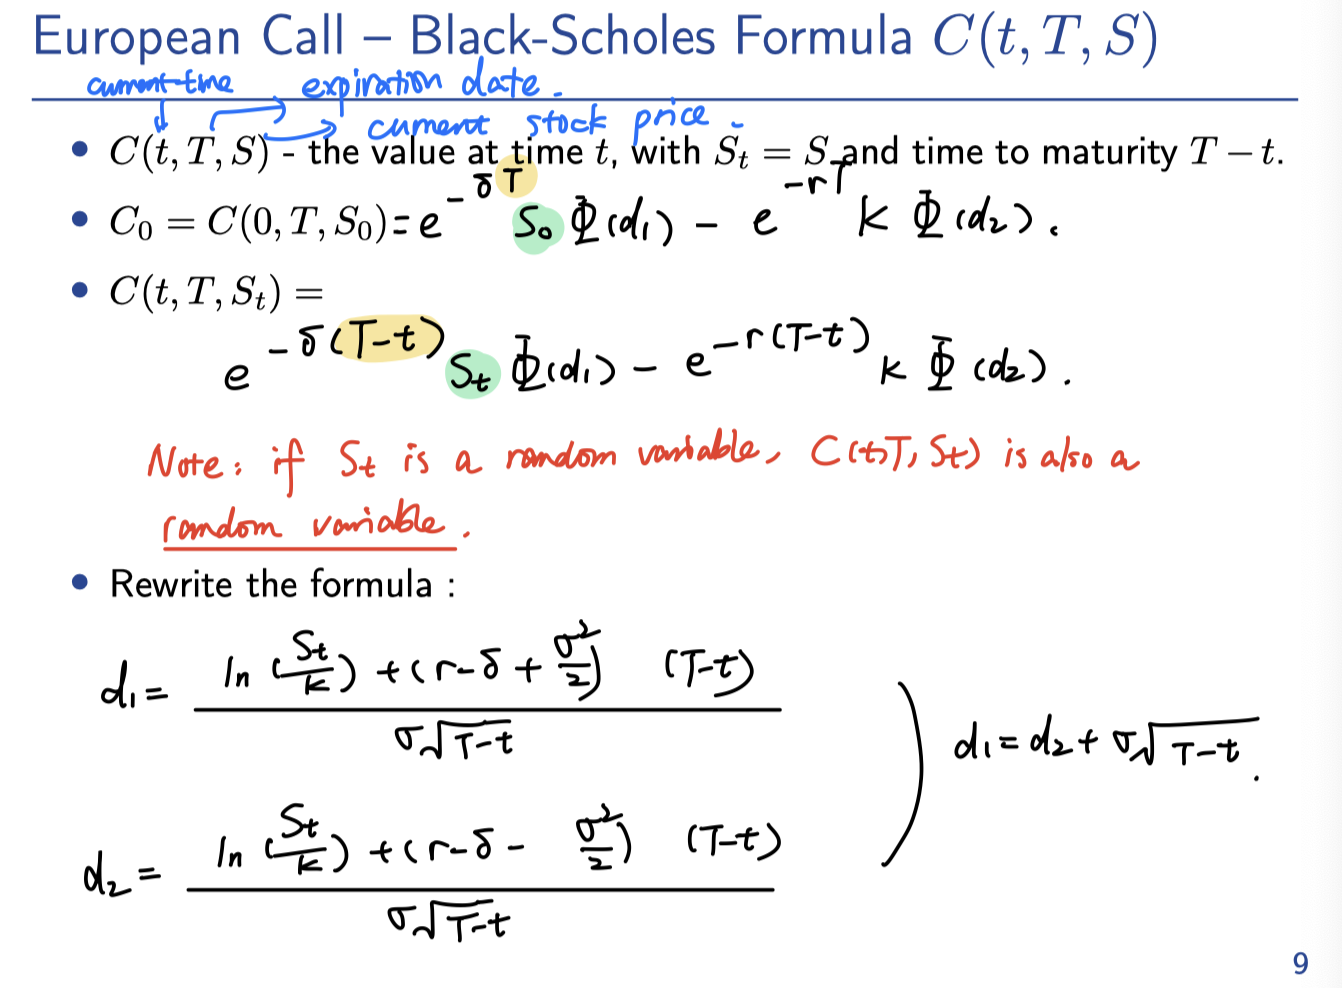 European Call – Black-Scholes Formula C(t, T, S)
current time
expiration date.
current stock price.
• C(t, T, S) - the value at time t, with S_t = S and time to maturity T − t.
• C_0 = C(0, T, S_0) = e^{-δT} S_0 Φ(d_1) − e^{-rT} K Φ(d_2).
• C(t, T, S_t) =
e^{-δ(T-t)} S_t Φ(d_1) − e^{-r(T-t)} K Φ(d_2).
Note: if S_t is a random variable, C(t,T, S_t) is also a
random variable.
• Rewrite the formula :
d_1 = \frac{ln(\frac{S_t}{K}) + (r-δ+\frac{σ^2}{2}) (T-t)}{σ\sqrt{T-t}}
d_1 = d_2 + σ\sqrt{T-t}.
d_2 = \frac{ln(\frac{S_t}{K}) + (r-δ-\frac{σ^2}{2}) (T-t)}{σ\sqrt{T-t}}
9